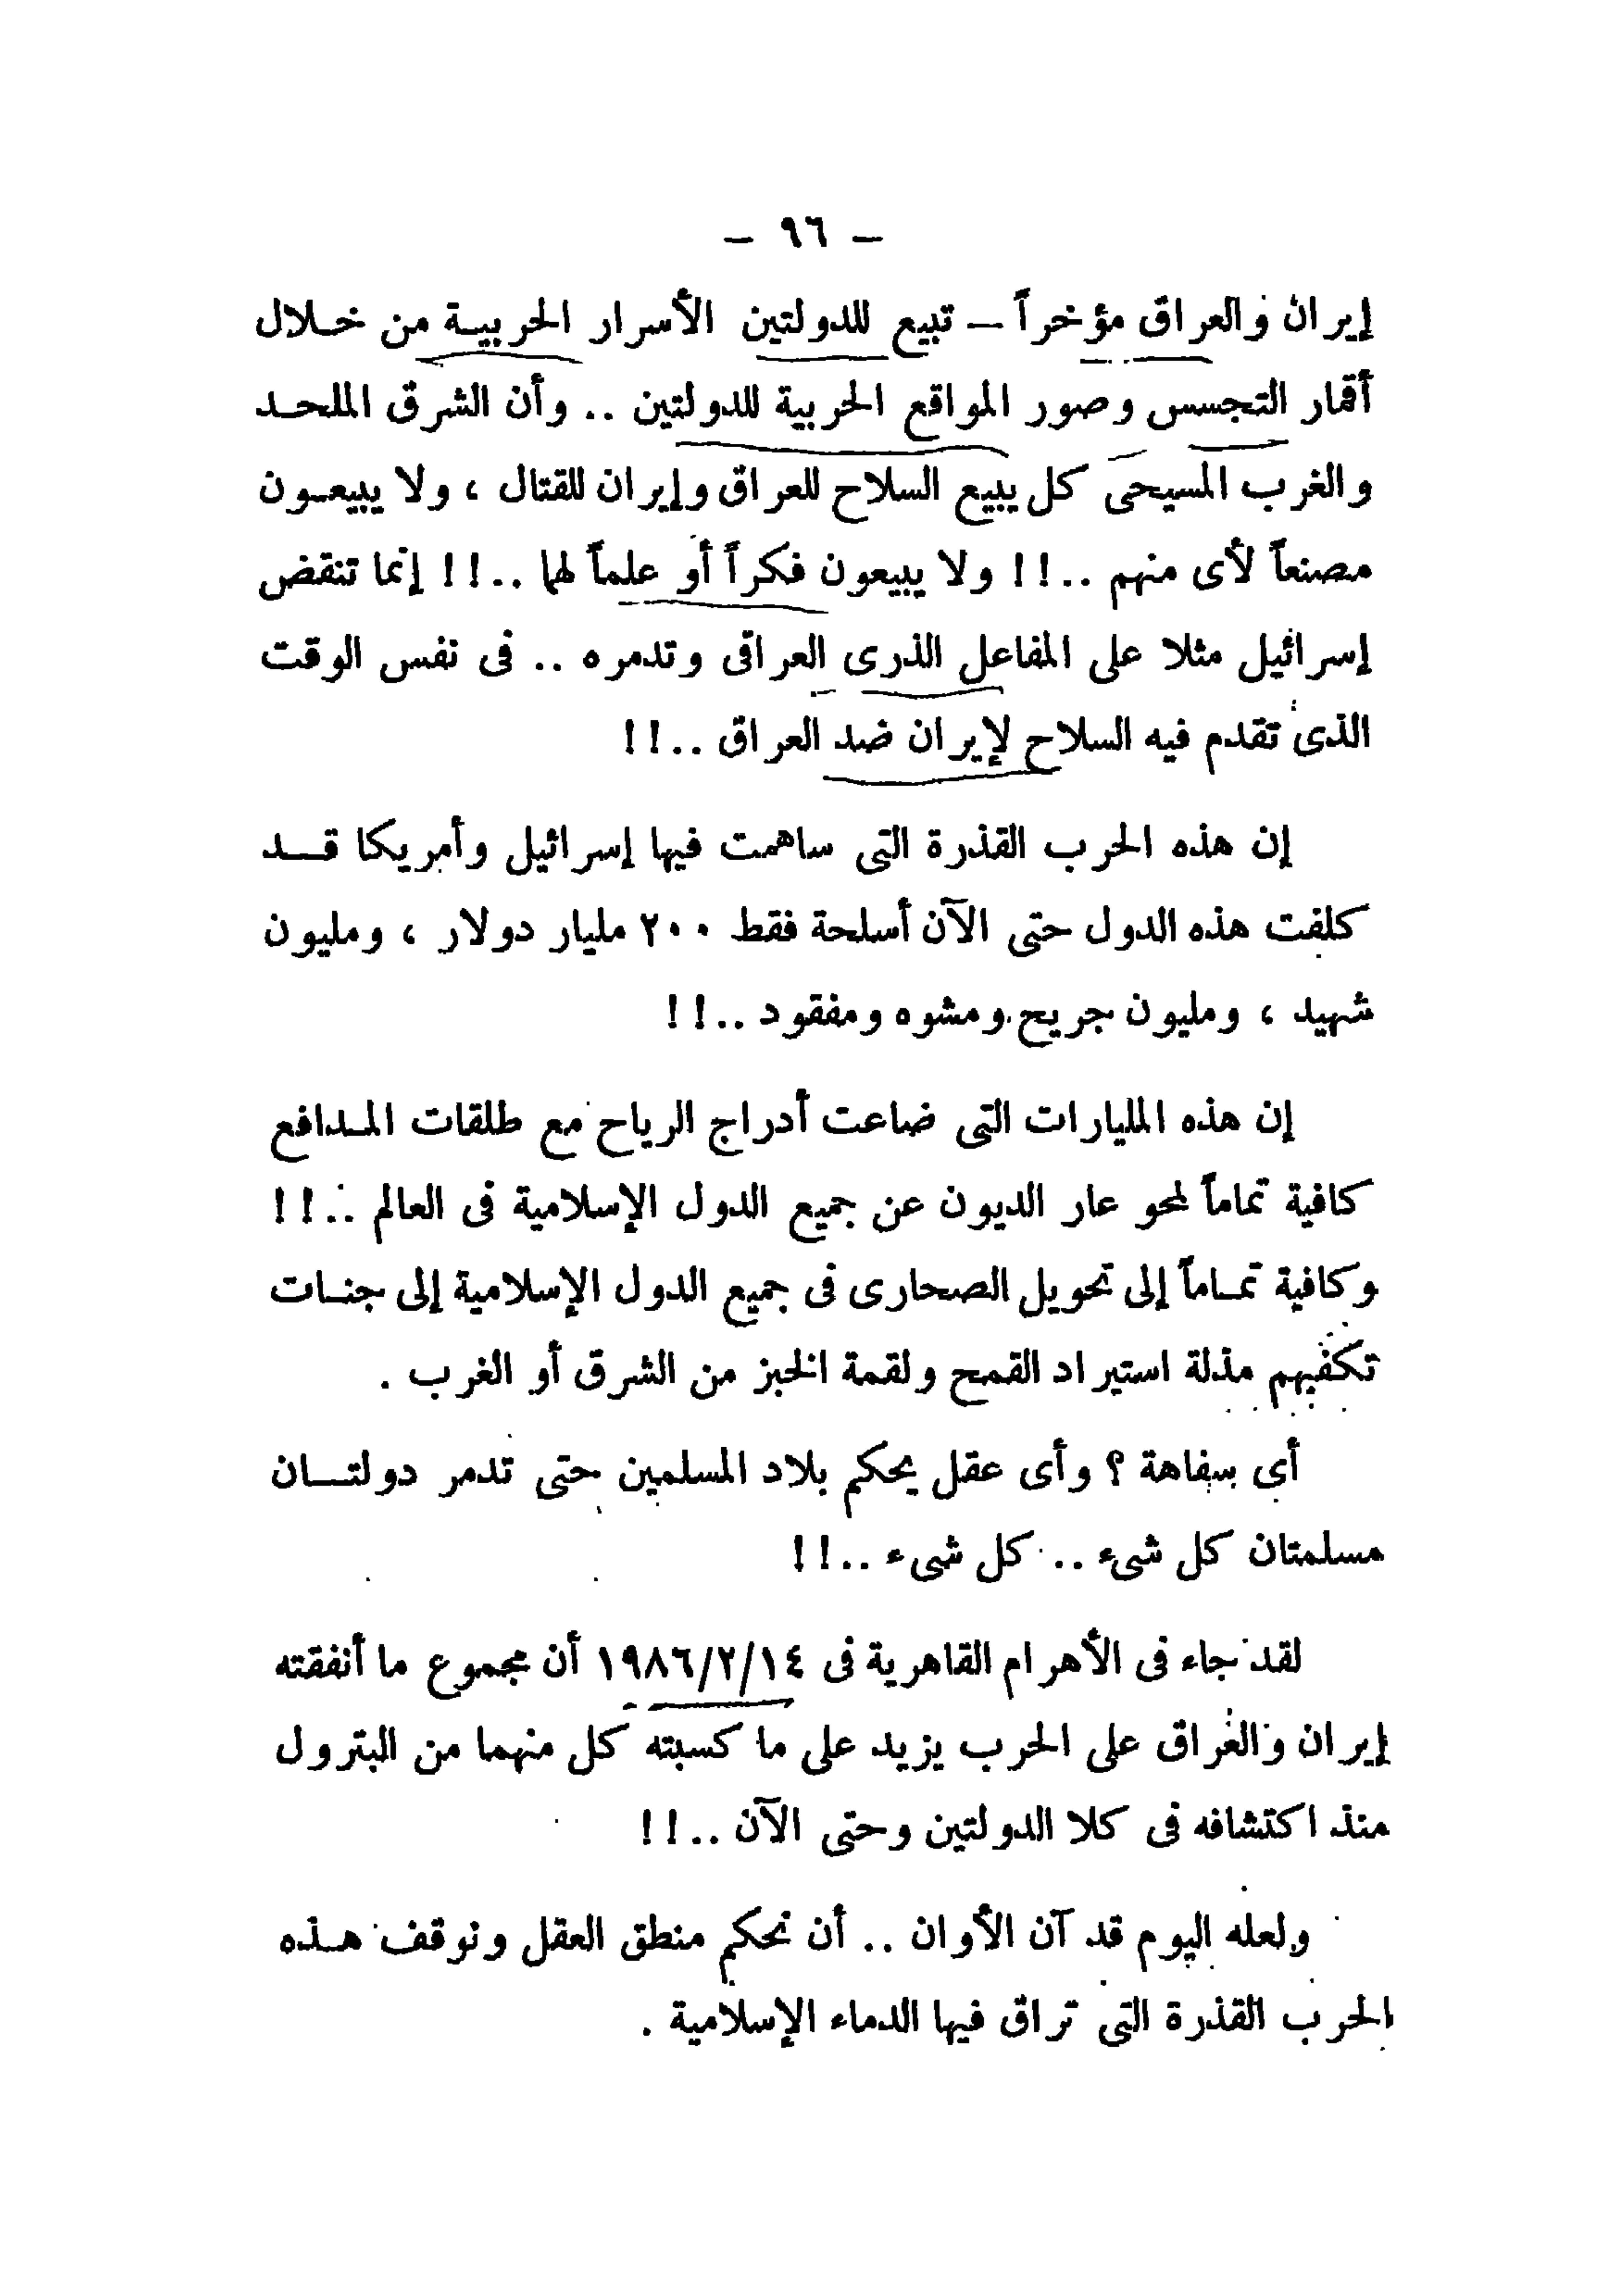 – ٩٦ –
إيران والعراق مؤخراً – تبيع للدولتين الأسرار الحربيـة من خـلال
أقمار التجسس وصور المواقع الحربية للدولتين .. وأن الشرق الملحـد
والغرب المسيحى كل يبيع السلاح للعراق وإيران للقتال ، ولا يبيعـون
مصنعاً لأى منهم ..!! ولا يبيعون فكراً أو علماً لهما ..!! إنما تنقض
إسرائيل مثلا على المفاعل الذرى العراقى وتدمره .. فى نفس الوقت
الذى تقدم فيه السلاح لإيران ضد العراق ..!!
إن هذه الحرب القذرة التى ساهمت فيها إسرائيل وأمريكا قــد
كلفت هذه الدول حتى الآن أسلحة فقط ٢٠٠ مليار دولار ، ومليون
شهيد ، ومليون جريح ومشوه ومفقود ..!!
إن هذه المليارات التى ضاعت أدراج الرياح مع طلقات المـدافع
كافية تماماً لمحو عار الديون عن جميع الدول الإسلامية فى العالم ..!!
وكافية تمـاماً إلى تحويل الصحارى فى جميع الدول الإسلامية إلى جنـات
تكفيهم مذلة استيراد القمح ولقمة الخبز من الشرق أو الغرب .
أى سفاهة ؟ وأى عقل يحكم بلاد المسلمين حتى تدمر دولتــان
مسلمتان كل شىء .. كل شىء ..!!
لقد جاء فى الأهرام القاهرية فى ١٩٨٦/٢/١٤ أن مجموع ما أنفقته
إيران والعراق على الحرب يزيد على ما كسبته كل منهما من البترول
منذ اكتشافه فى كلا الدولتين وحتى الآن ..!!
ولعله اليوم قد آن الأوان .. أن نحكم منطق العقل ونوقف هـذه
الحرب القذرة التى تراق فيها الدماء الإسلامية .